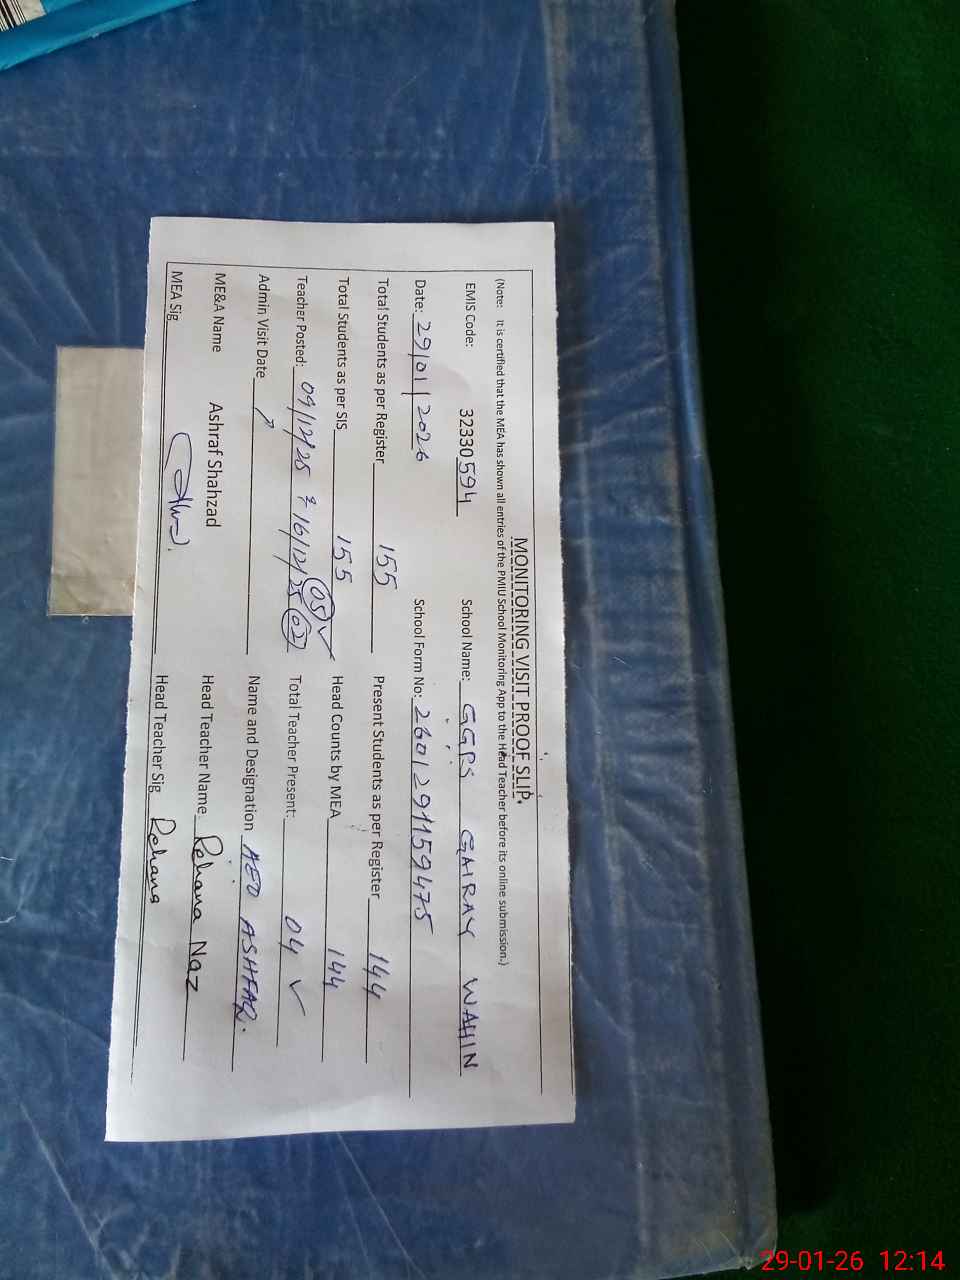 MONITORING VISIT PROOF SLIP.
(Note: It is certified that the MEA has shown all entries of the PMIU School Monitoring App to the Head Teacher before its online submission.)
EMIS Code: 32330594 School Name: GGPS GAIRAY WAHIN
Date: 29/01/2026 School Form No: 2601291159475
Total Students as per Register 155 Present Students as per Register 144
Total Students as per SIS 155 Head Counts by MEA 144
Teacher Posted: 05 ✓ Total Teacher Present: 04 ✓
09/12/25 & 16/12/25 02
Admin Visit Date Name and Designation AEO ASHFAQ.
ME&A Name Ashraf Shahzad Head Teacher Name Rehana Naz
MEA Sig Head Teacher Sig Rehana
29-01-26 12:14